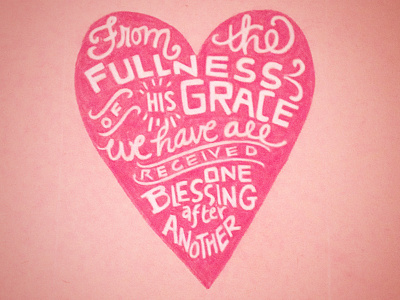 From the
FULLNESS
OF HIS GRACE
we have all
RECEIVED
ONE
BLESSING
after
ANOTHER